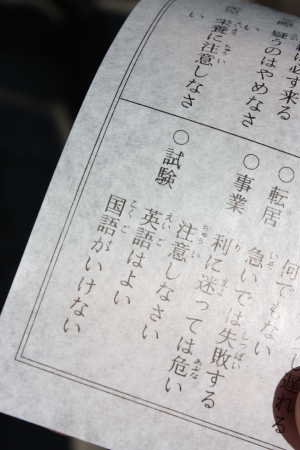 必ず来る
疑うのはやめなさ
い
栄養に注意しなさ
い
○転居 何でもない
○事業 急いでは失敗する
利に迷っては危い
○試験 注意しなさい
英語はよい
国語がいけない